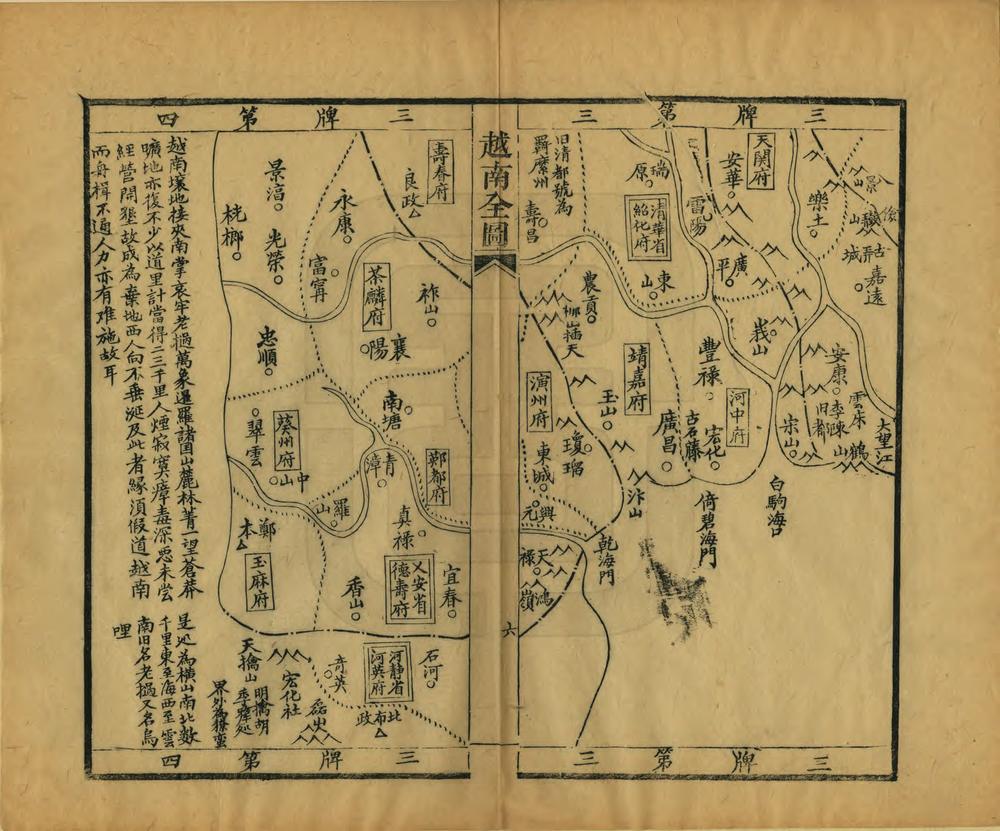 三牌第三
越南全圖
六
三牌第四
天関府
安華
瑞原
雷陽
清華省
紹化府
舊清都號為
羈縻州
壽昌
樂土
景山
嘉遠
廣平
東山
農貢
峩山
豐祿
安康
雲床
大望江
李陳旧都
鶴山
宗山
河中府
宏化
古石藤
靖嘉府
廣昌
玉山
演州府
瓊瑠
東城
興元
汴山
倚碧海門
白駒海口
乾海門
天祿
鴻嶺
壽春府
良政
永康
景淳
光榮
桄榔
富寗
茶麟府
祚山
襄陽
忠順
南塘
翠雲
葵州府
中山
青漳
鄭都府
羅山
真祿
鄭本
玉麻府
香山
乂安省
德壽府
宜春
河靜省
河英府
石河
奇英
北布政
磊山
宏化社
天擒山
越南壤地接夾南掌哀牢老撾萬象暹羅諸国山麓林菁一望蒼莽
曠地亦復不少以道里計當得二三千里人煙寂寞瘴毒深恶未尝
經營開墾故成為棄地西人向不垂涎及此者緣須假道越南
而舟楫不通人力亦有难施故耳
是処為橫山南北數
千里東至海西至雲
南旧名老撾又名烏
哩
三牌第三
三牌第四